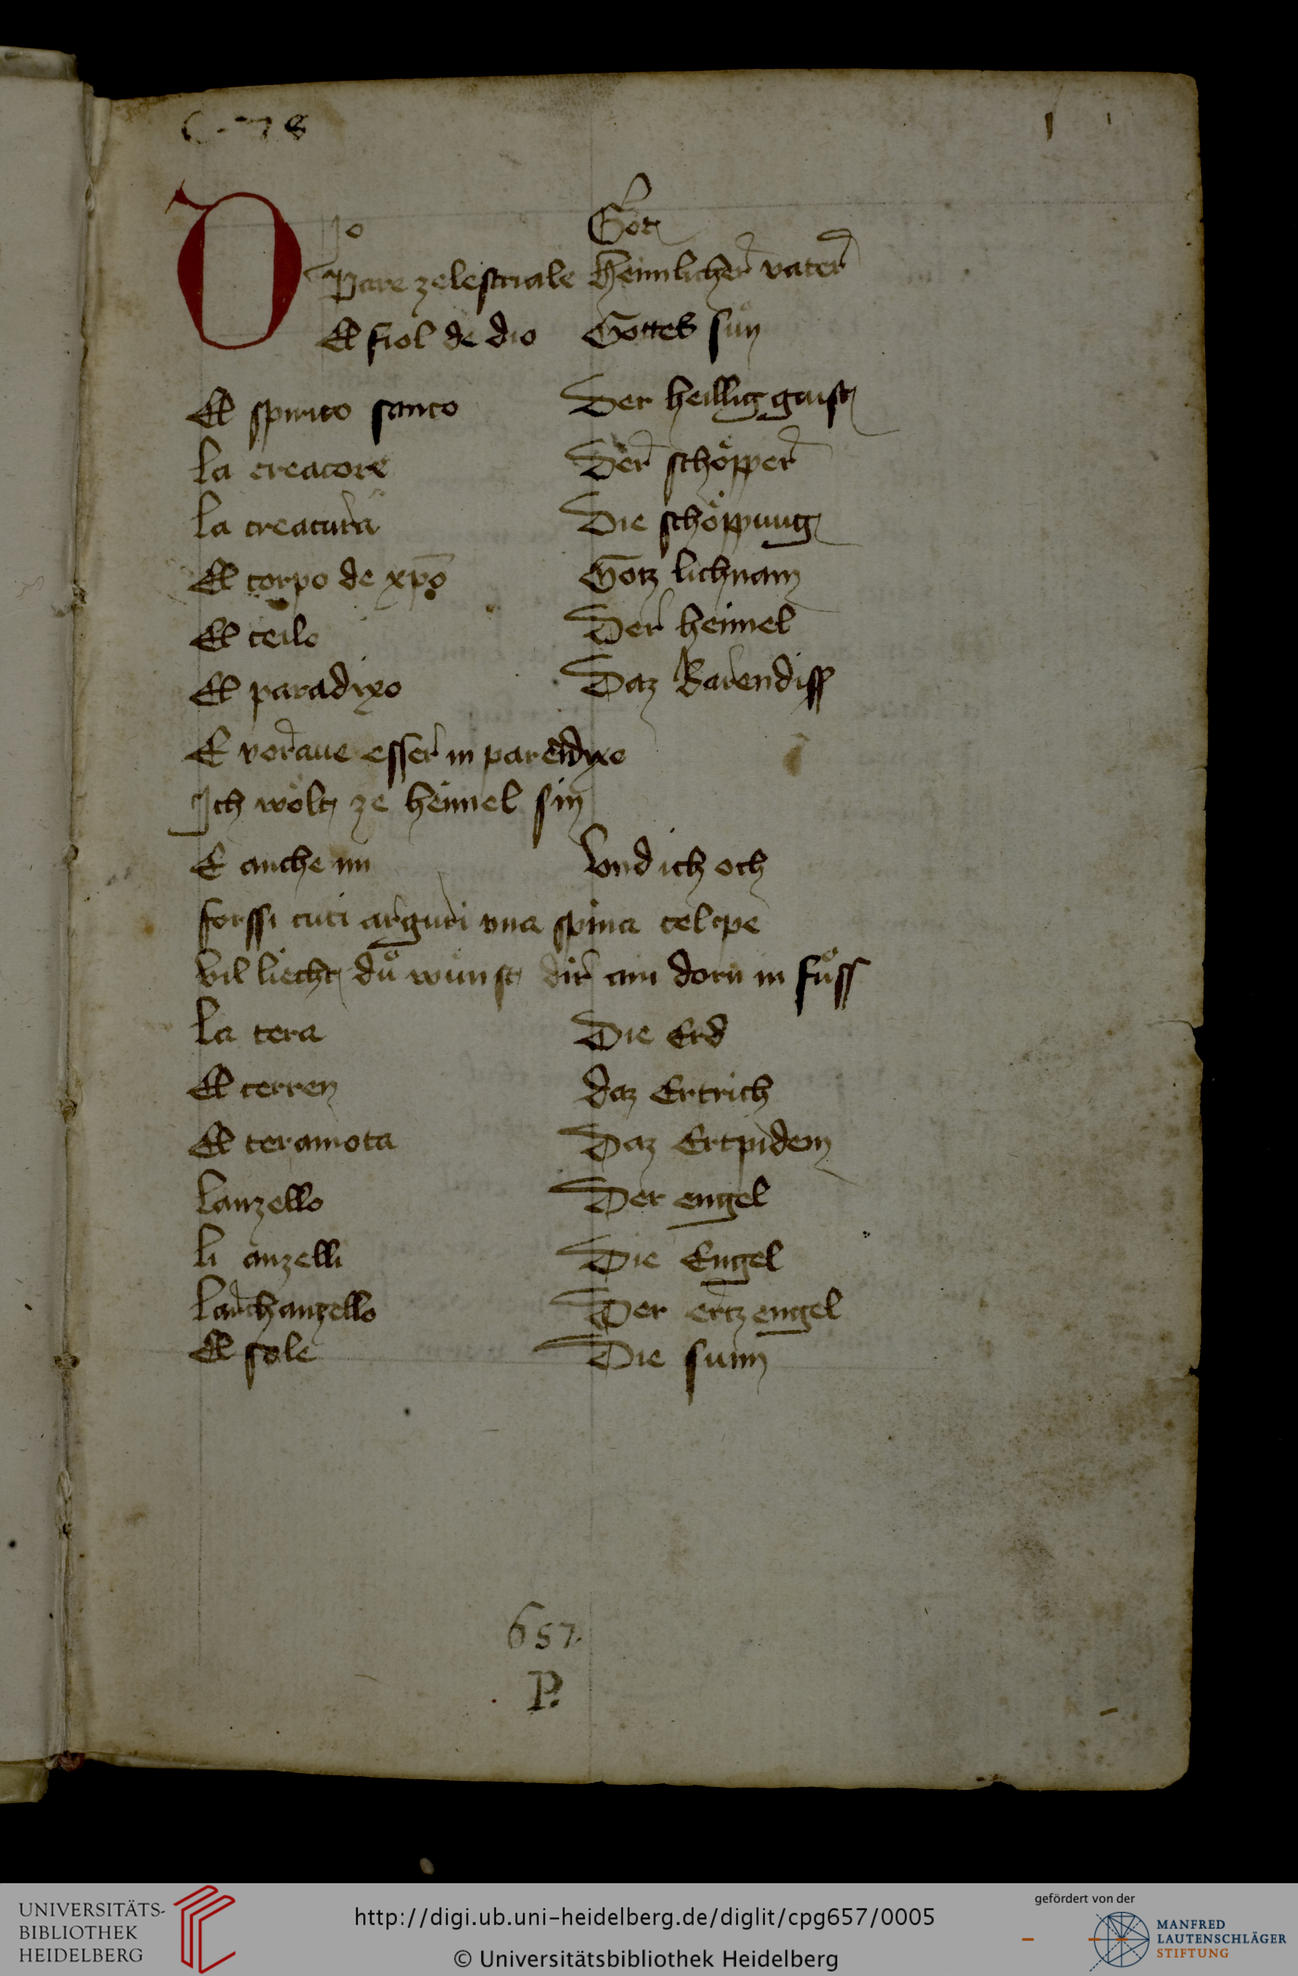 C. 78 1
DIo Got
Pare zelestriale Heimlicher vater
El fiol de dio Gottes sůn
El spirito santo Der heillig gaist
la creatore Der schöpper
la creatura Die schöppung
El corpo de xpo Gotz lichnam
El ceilo Der heimel
El paradixo Daz Barendiss
E vorave esser in parendixo
Ich wölt ze heimel sin
E anche mi Vnd ich och
forssi tuti arguri vna spina cel pe
Vil liecht dů wünst dir ain dorn in fůss
la tera Die Erd
El terren daz Ertrich
El teramota Daz Ertpidem
lanzello Der engel
li anzelli Die Engel
larchanzello Der ertzengel
El sole Die sunn
657.
P.
UNIVERSITÄTS-
BIBLIOTHEK
HEIDELBERG
http://digi.ub.uni-heidelberg.de/diglit/cpg657/0005
© Universitätsbibliothek Heidelberg
gefördert von der
MANFRED
LAUTENSCHLÄGER
STIFTUNG